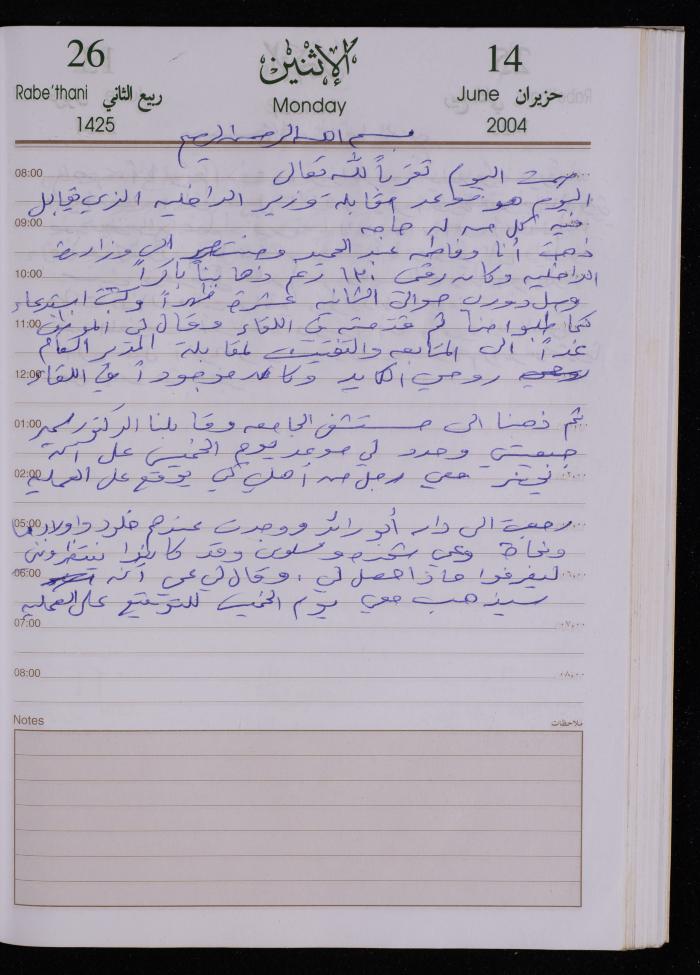 26 الإثنين 14
Rabe'thani ربيع الثاني Monday June حزيران
1425 2004
بسم الله الرحمن الرحيم
08:00 صمت اليوم تقرباً لله تعالى
اليوم هو موعد مقابلة وزير الداخليه الذي يقابل
09:00 فيه كل من له حاجه
ذهبت أنا وفاطمه عبد الحميد ومنتصر الى وزارة
10:00 الداخليه وكان رقمي ١٣٠ رغم ذهابنا باكراً
وصل دورن حوالي الثانيه عشرة ظهراً وكتبت استدعاء
11:00 كما طلبوا منا ثم قدمته في اللقاء وقال لي الموظف
غداً الى المتابعه والتفتيش لمقابلة المدير العام
12:00 روحي الكايد وكان موجوداً في اللقاء
01:00 ثم ذهبنا الى مستشفى الجامعه وقابلنا الدكتور سمير
وحدد لي موعد يوم الخميس على أنه
02:00 معي رجل من أهلي كي يوقع على العمليه
05:00 رجعت الى دار أبو رائد ووجدت عندهم خلود واولادها
وعمي وسلوى وقد كانوا ينتظرونني
06:00 ليعرفوا ماذا حصل لي، وقال لي عمي أنه
سيذهب معي يوم الخميس للتوقيع على العمليه
07:00 ٠٧,٠٠
08:00 ٠٨,٠٠
Notes ملاحظات